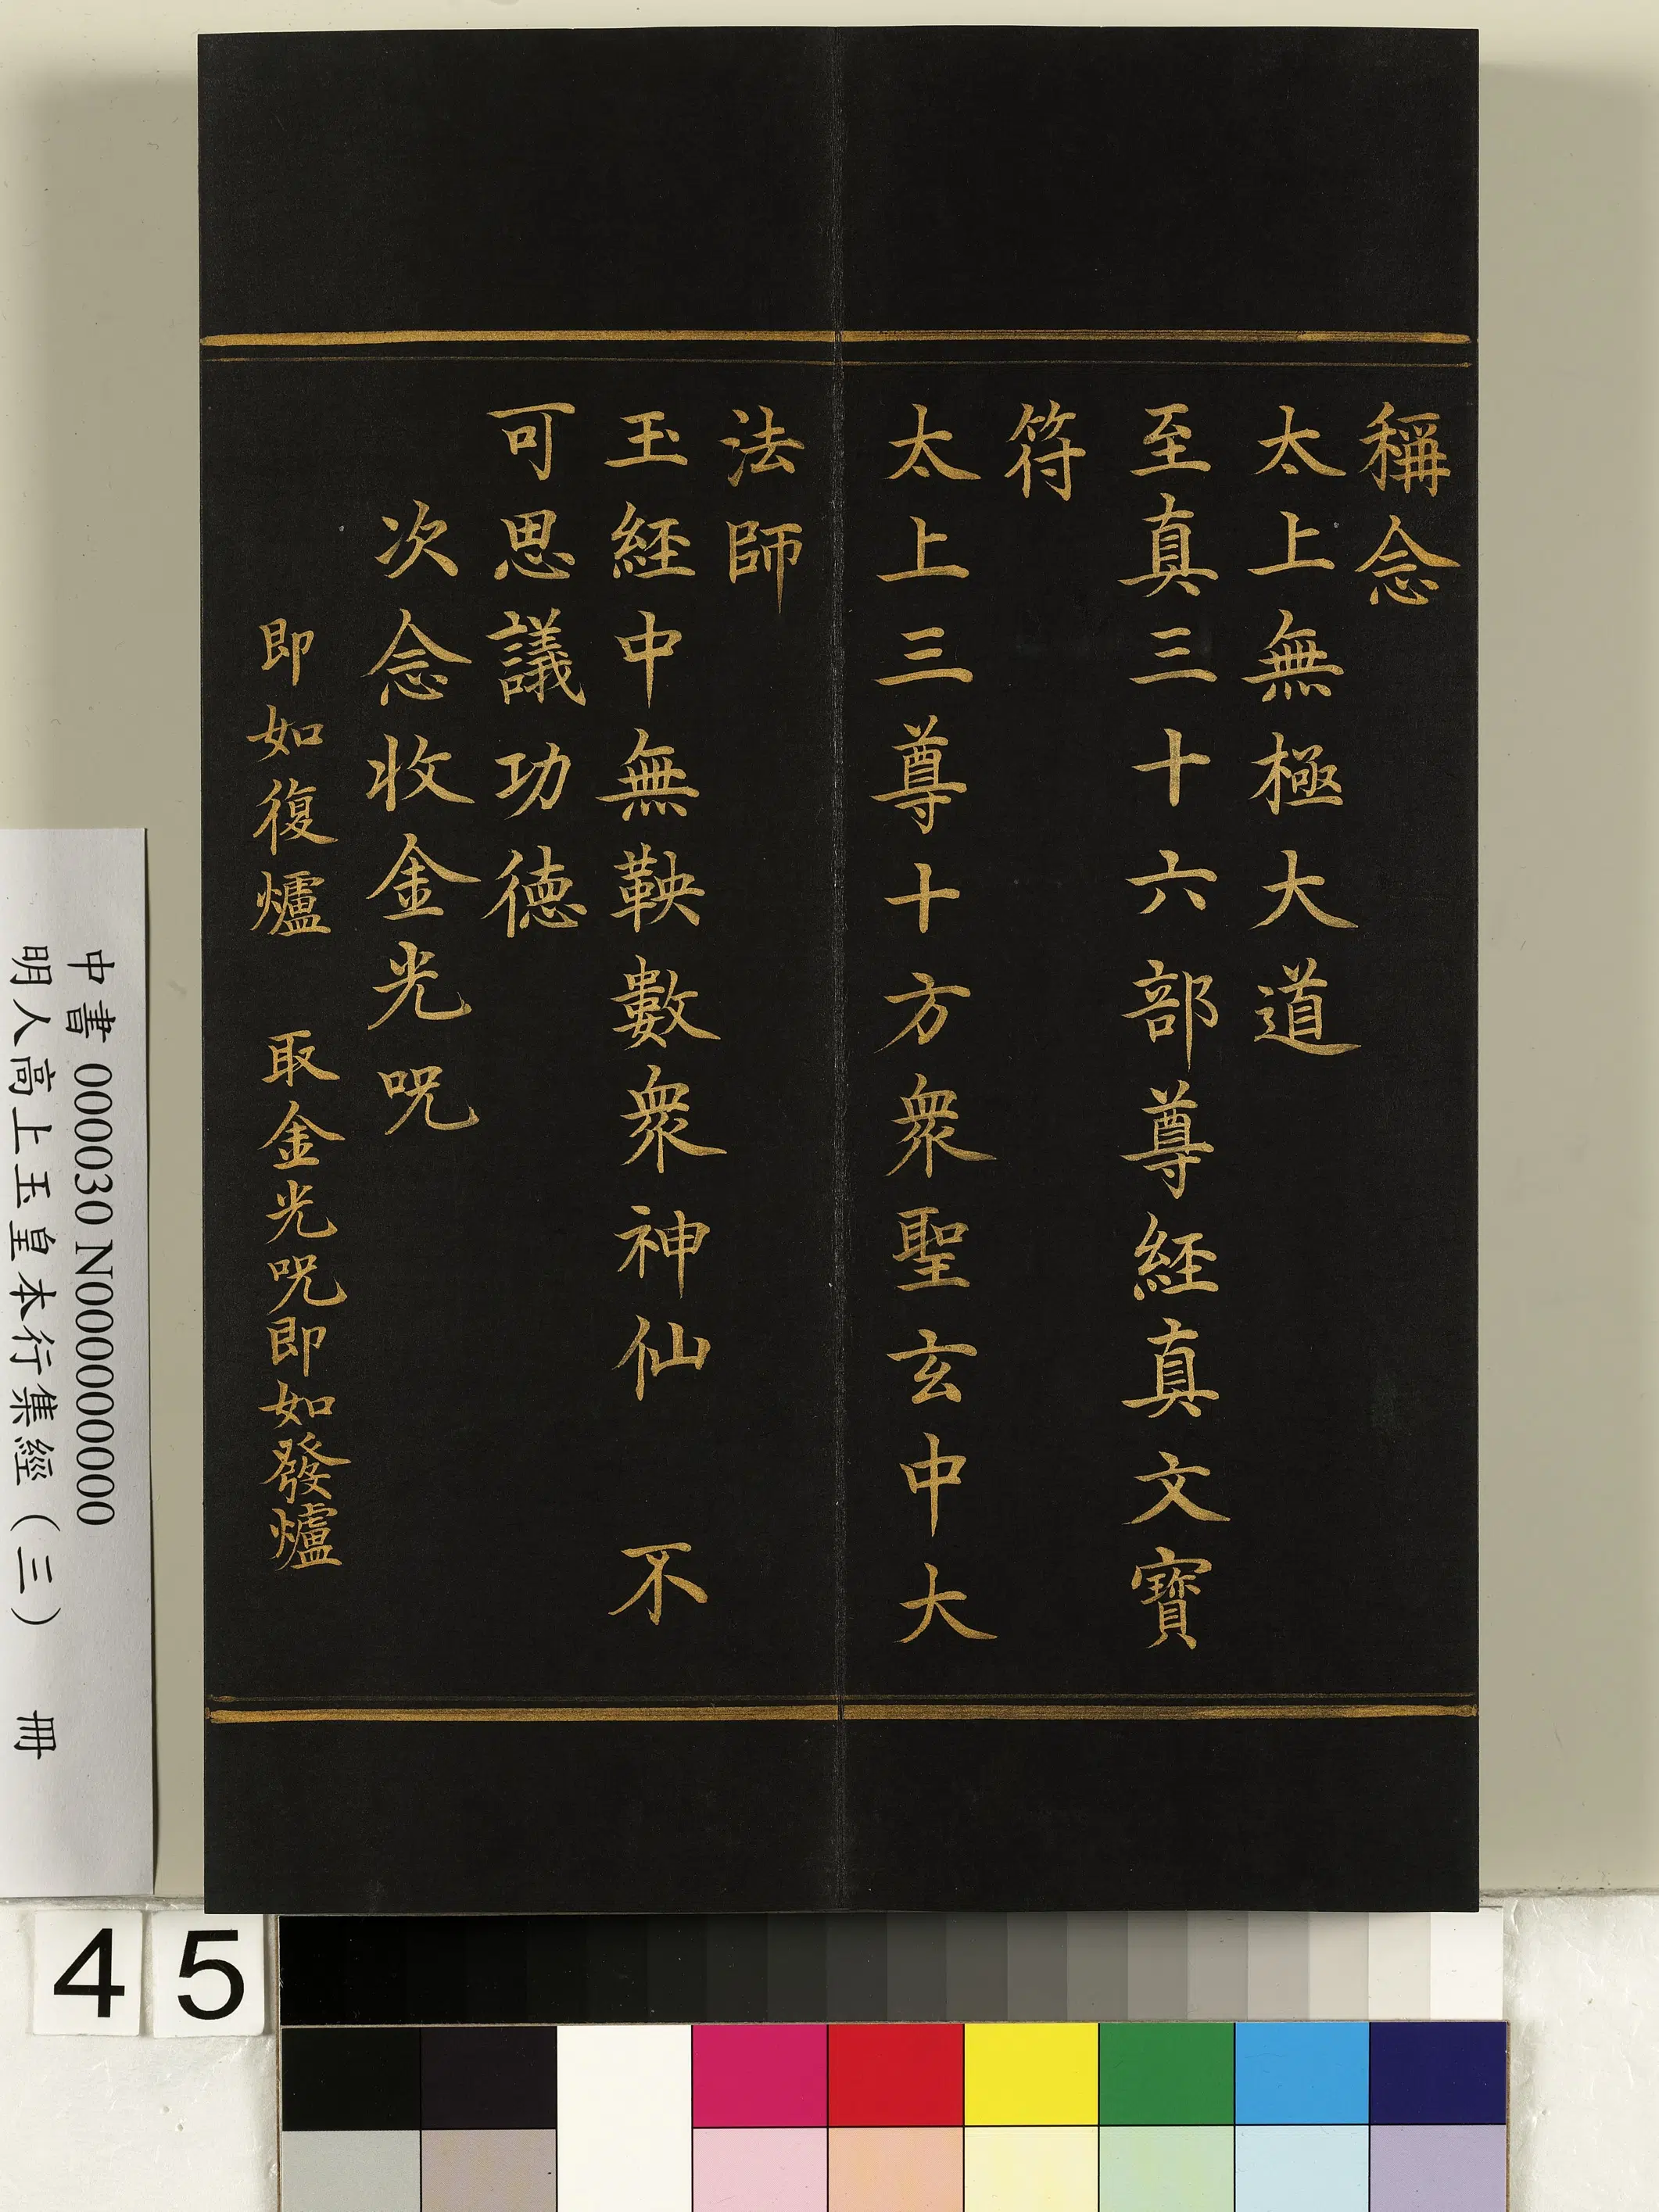 稱念
太上無極大道
至真三十六部尊經真文寶
符
太上三尊十方衆聖玄中大
法師
玉經中無鞅數衆神仙　不
可思議功德
次念收金光咒
即如復爐　取金光咒即如發爐
中書 000030 N000000000
明人高上玉皇本行集經（三）　冊
45